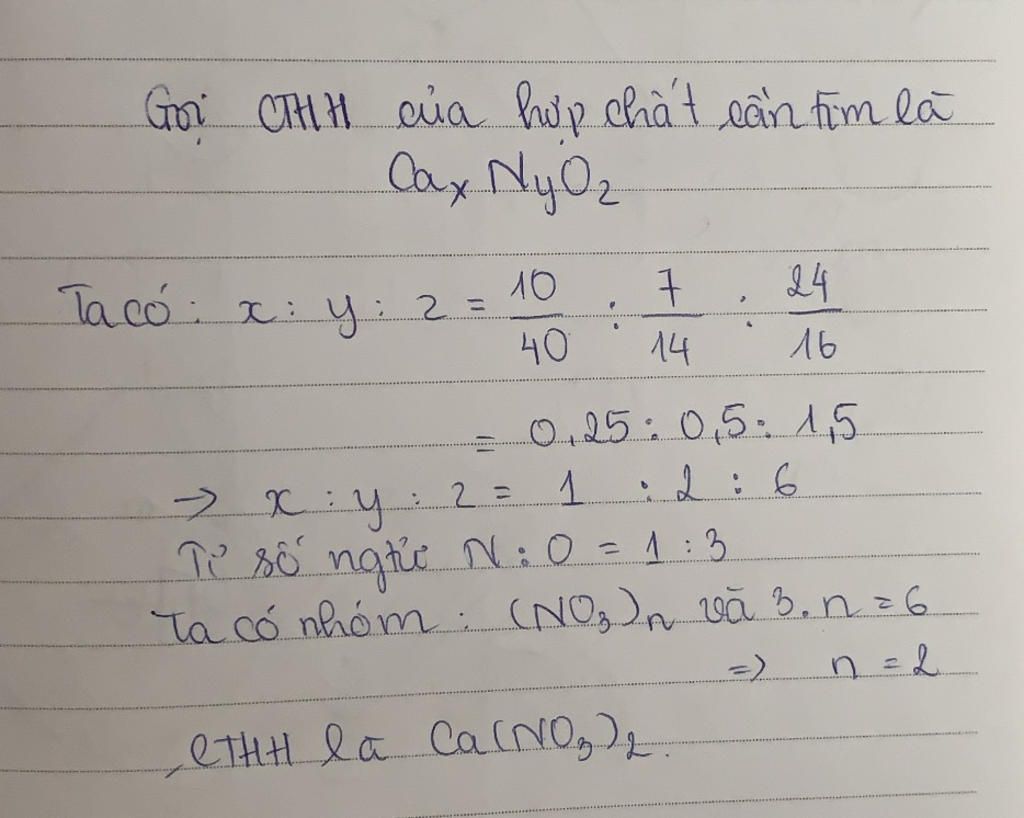 Gọi CTHH của hợp chất cần tìm là
CaxNyOz
Ta có: x : y : z = 10/40 : 7/14 : 24/16
= 0,25 : 0,5 : 1,5
→ x : y : z = 1 : 2 : 6
Tỉ số ngtử N : O = 1 : 3
Ta có nhóm : (NO3)n và 3.n = 6
=> n = 2
CTHH là Ca(NO3)2.